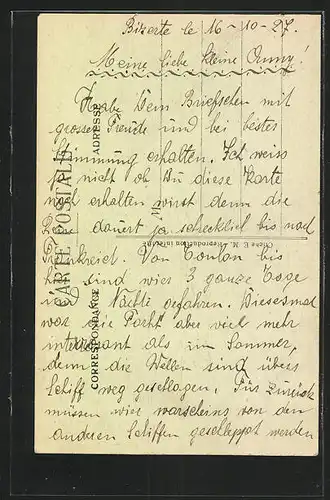 Bizerte le 16-10-27.
Meine liebe kleine Anny!
Habe Dein Briefchen mit
grosser Freude und bei bester
Stimmung erhalten. Ich weiss
ja nicht ob Du diese Karte
noch erhalten wirst denn die
Reise dauert ja schrecklich bis nach
Frankreich. Von Toulon bis
hier sind wier 3 ganze Tage
und Nächte gefahren. Dieses mal
war die Fart aber viel mehr
interessant als im Sommer,
denn die Wellen sind übers
Schiff weg geschlagen. Fürs zurück
müssen wier warscheins von den
anderen Schiffen geschleppt werden
CARTE POSTALE
CORRESPONDANCE
ADRESSE
Reproduction interdite